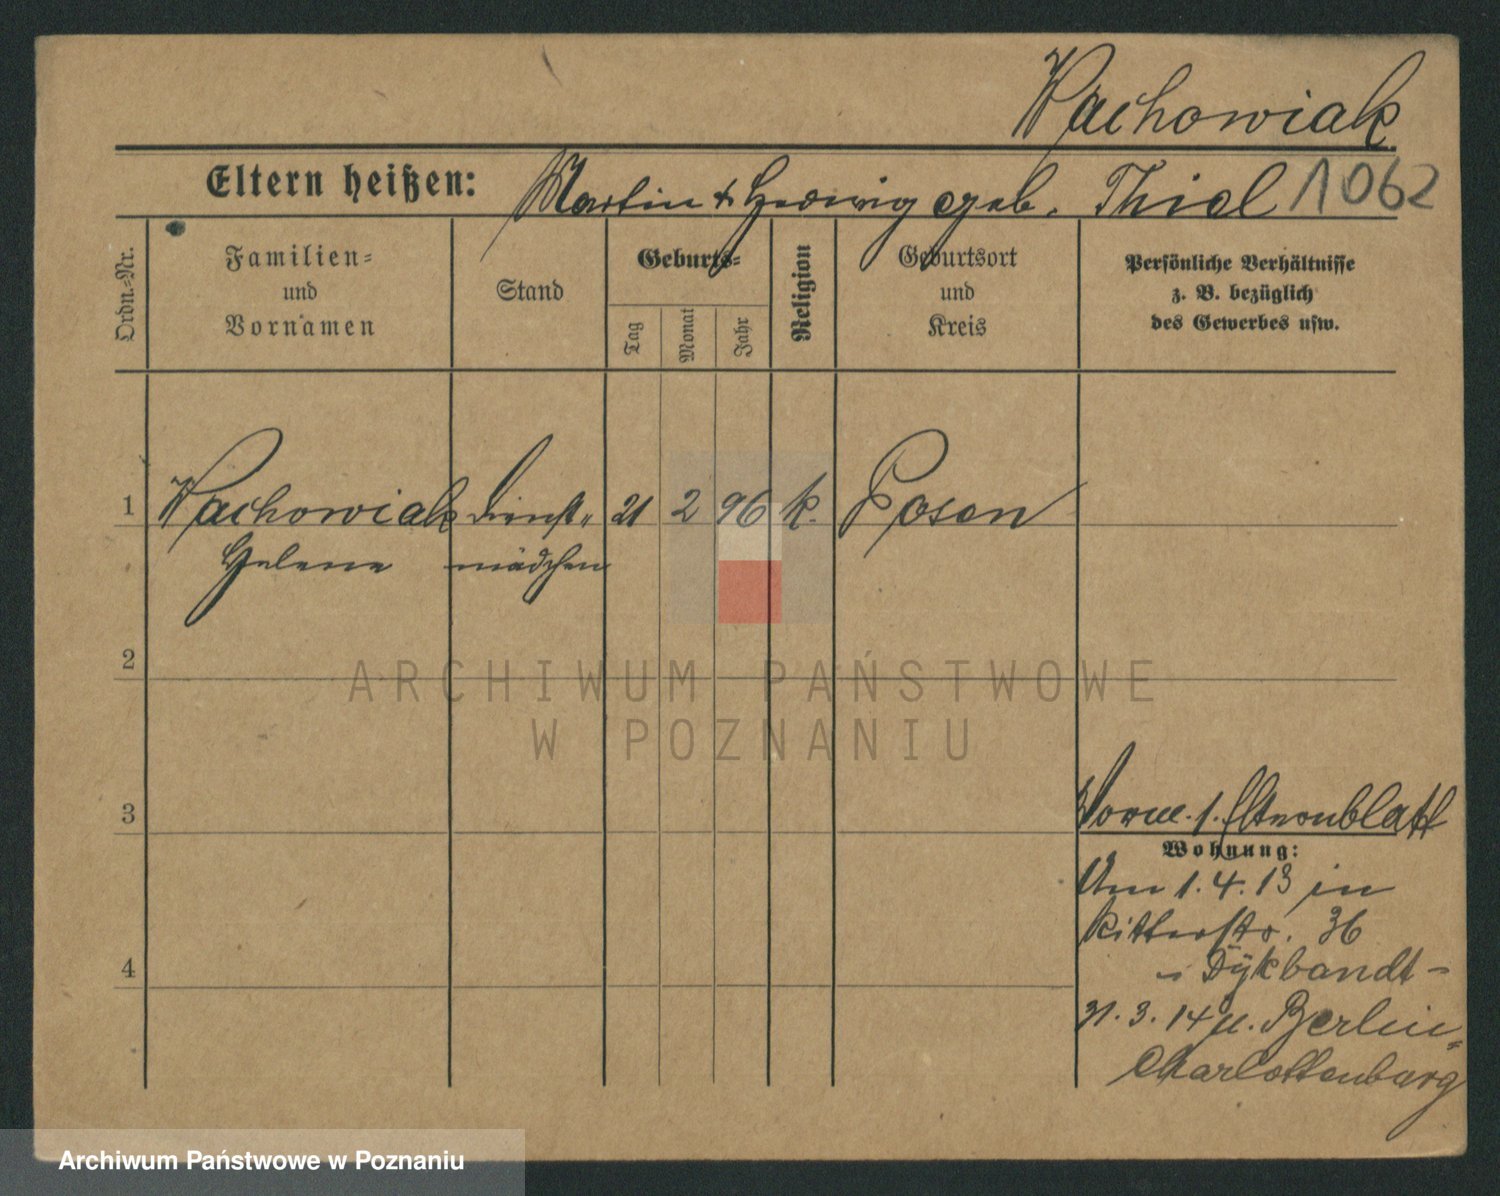 Wachowiak
Eltern heißen: Martin & Hedwig geb. Thiel 1062
Ordn.-Nr.
Familien-
und
Vornamen
Stand
Geburts-
Tag
Monat
Jahr
Religion
Geburtsort
und
Kreis
Persönliche Verhältnisse
z. B. bezüglich
des Gewerbes usw.
1 Wachowiak Dienst- 21 2 96 k. Posen
Helene mädchen
2
ARCHIWUM PAŃSTWOWE
W POZNANIU
3
Vorm. 1. Elternblatt
Wohnung:
Am 1.4.13 in
Ritterstr. 36
Dykbandt -
4
31.3.14 n. Berlin-
Charlottenburg
Archiwum Państwowe w Poznaniu